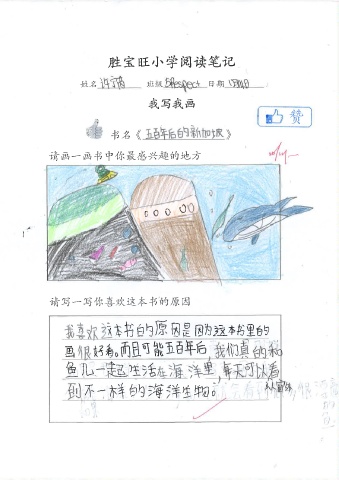 胜宝旺小学阅读笔记
姓名 班级 5Respect 日期
我写我画
赞
书名《五百年后的新加坡》
请画一画书中你最感兴趣的地方
请写一写你喜欢这本书的原因
我喜欢这本书的原因是因为这本书里的
画很好看。而且可能五百年后我们真的和
鱼儿一起生活在海洋里，每天可以看
到不一样的海洋生物。